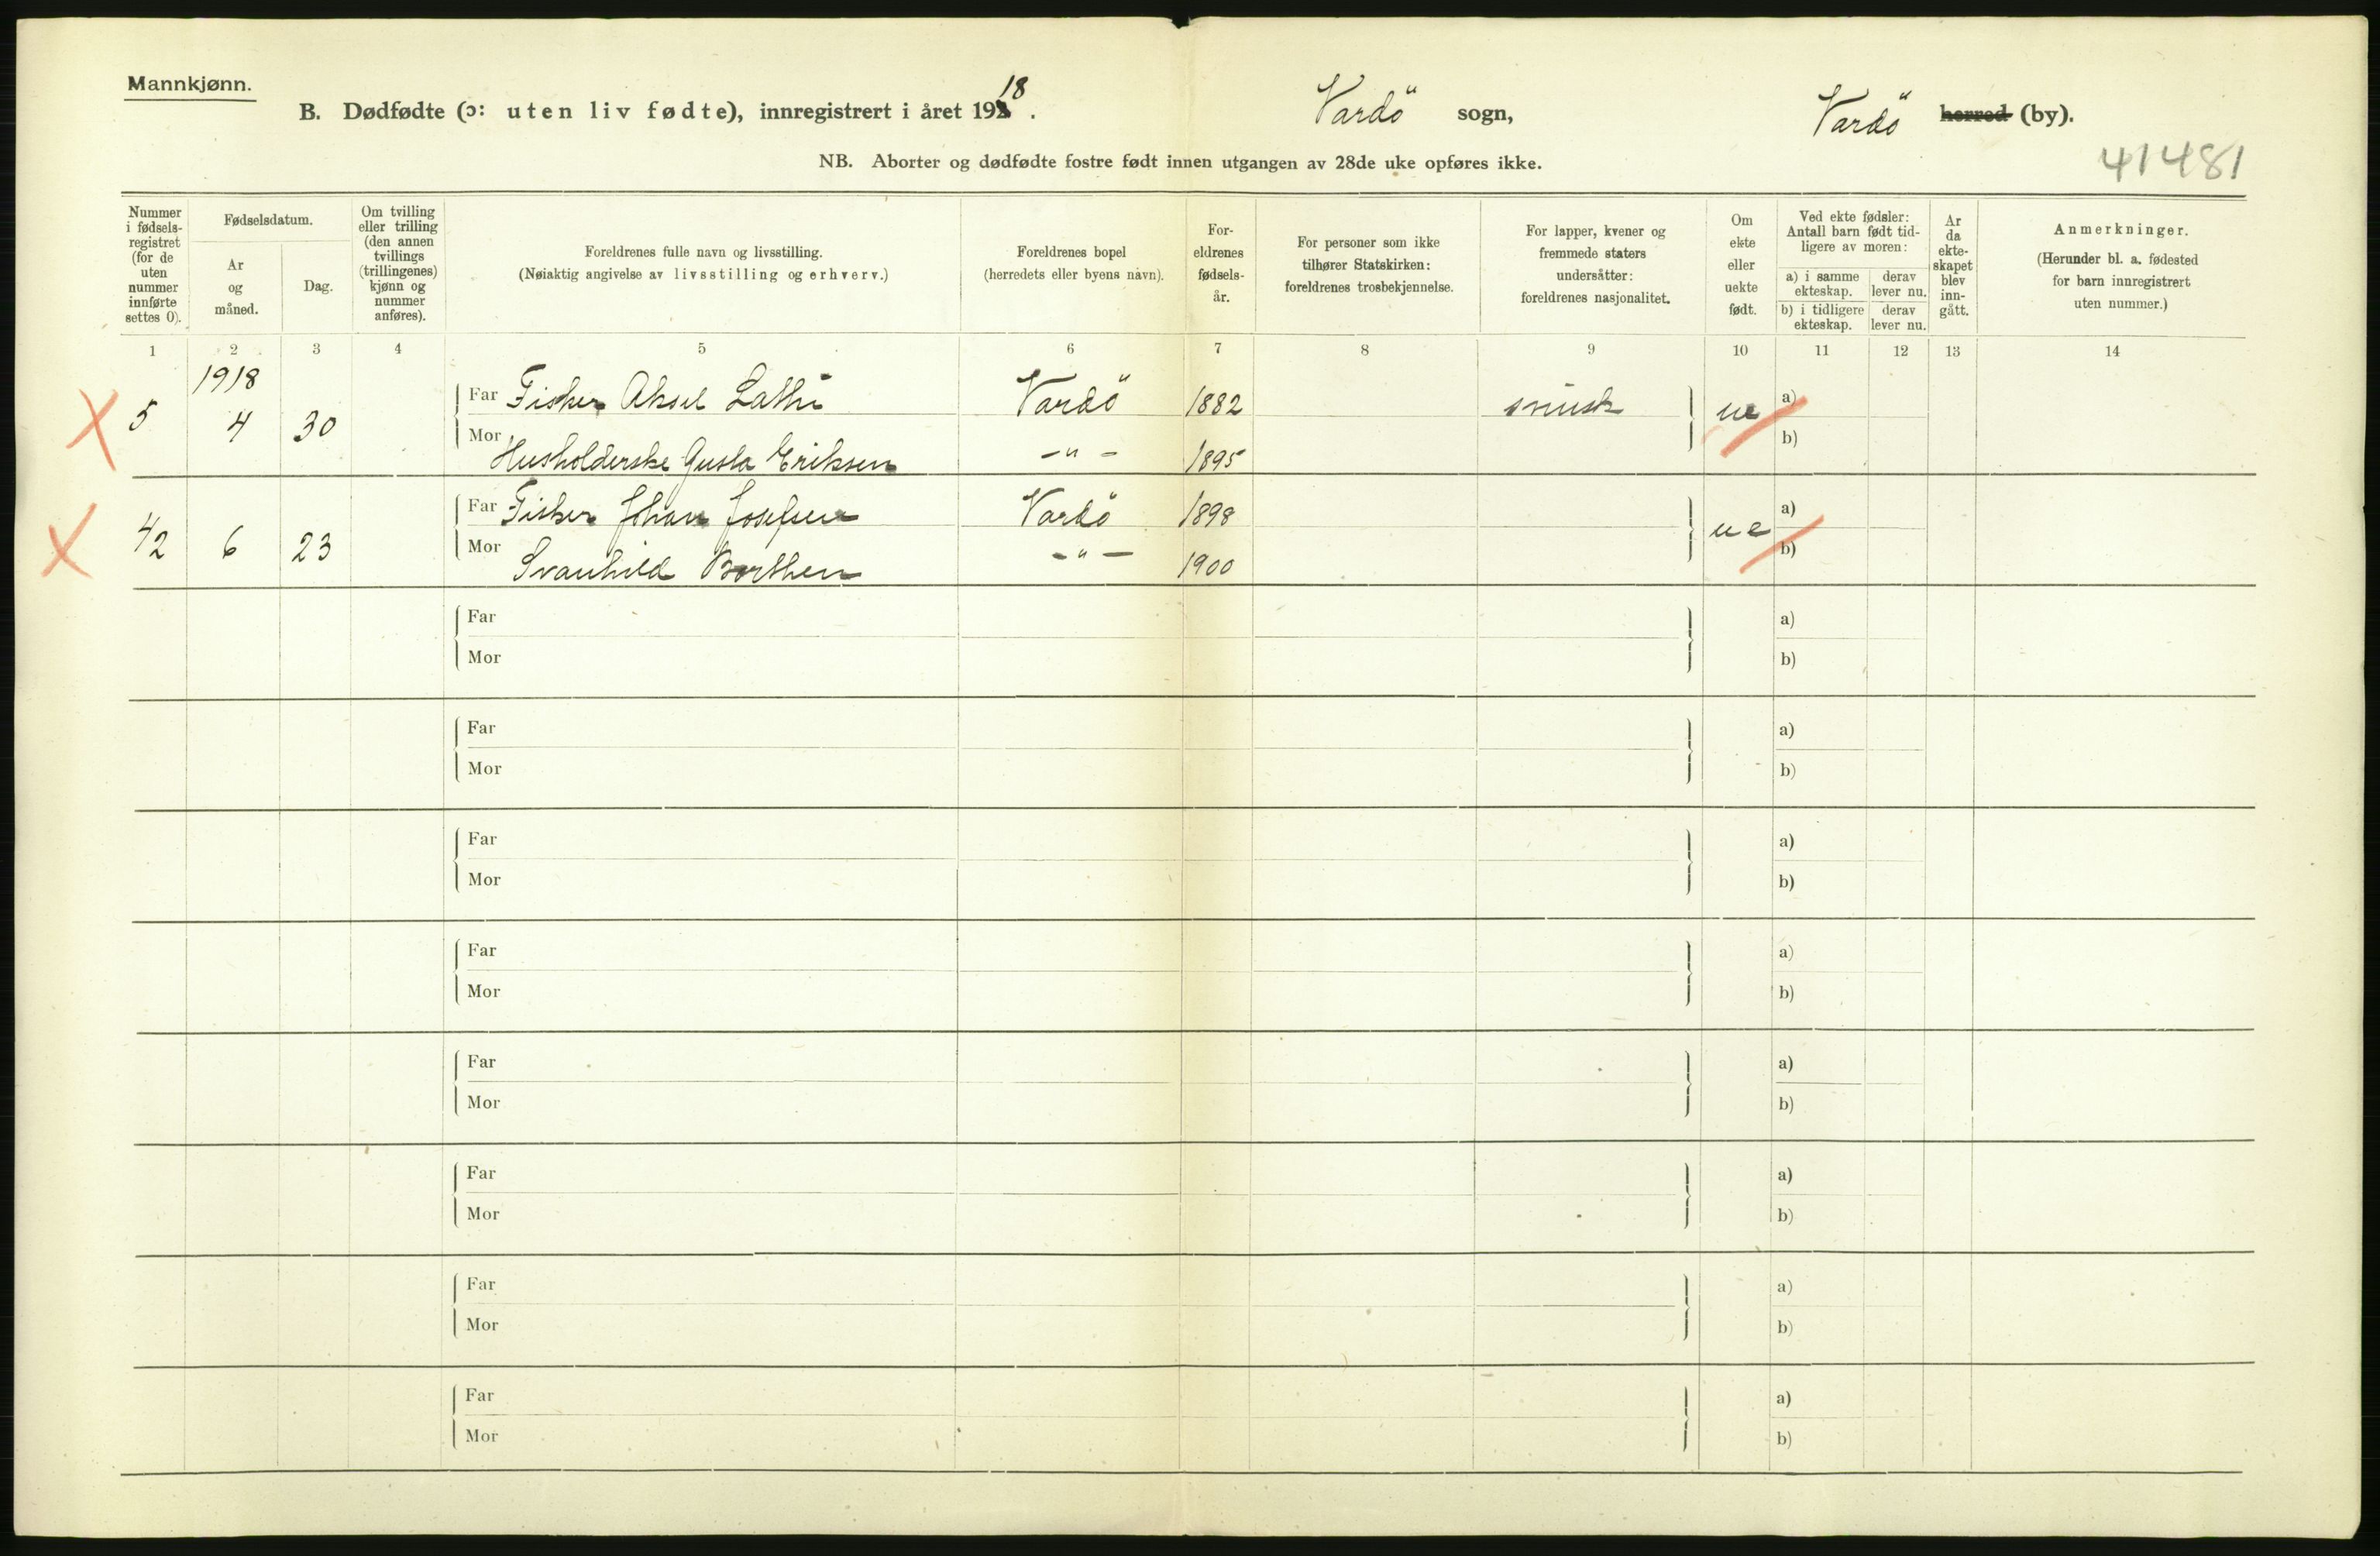 Mannkjønn.
B. Dødfødte (ɔ: uten liv fødte), innregistrert i året 1918. Vardö sogn, Vardö herred (by).
NB. Aborter og dødfødte fostre født innen utgangen av 28de uke opføres ikke.
41481
Nummer i fødsels-registret (for de uten nummer innførte settes 0).
Fødselsdatum.
Ar og måned.
Dag.
Om tvilling eller trilling (den annen tvillings (trillingenes) kjønn og nummer anføres).
Foreldrenes fulle navn og livsstilling.
(Nøiaktig angivelse av livsstilling og erhverv.)
Foreldrenes bopel
(herredets eller byens navn).
For-eldrenes fødsels-år.
For personer som ikke tilhører Statskirken: foreldrenes trosbekjennelse.
For lapper, kvener og fremmede staters undersåtter: foreldrenes nasjonalitet.
Om ekte eller uekte født.
Ved ekte fødsler: Antall barn født tid-ligere av moren:
a) i samme ekteskap. derav lever nu.
b) i tidligere ekteskap. derav lever nu.
Ar da ekte-skapet blev inn-gått.
Anmerkninger.
(Herunder bl. a. fødested for barn innregistrert uten nummer.)
1 2 3 4 5 6 7 8 9 10 11 12 13 14
1918
5 4 30 Far Fisker Aksel Lathi Vardö 1882 ue a)
Mor Husholderske Gusta Eriksen -"- 1895 b)
42 6 23 Far Fisker Johan Josefsen Vardö 1898 ue a)
Mor Svanhild Borthen -"- 1900 b)
Far a)
Mor b)
Far a)
Mor b)
Far a)
Mor b)
Far a)
Mor b)
Far a)
Mor b)
Far a)
Mor b)
Far a)
Mor b)
Far a)
Mor b)